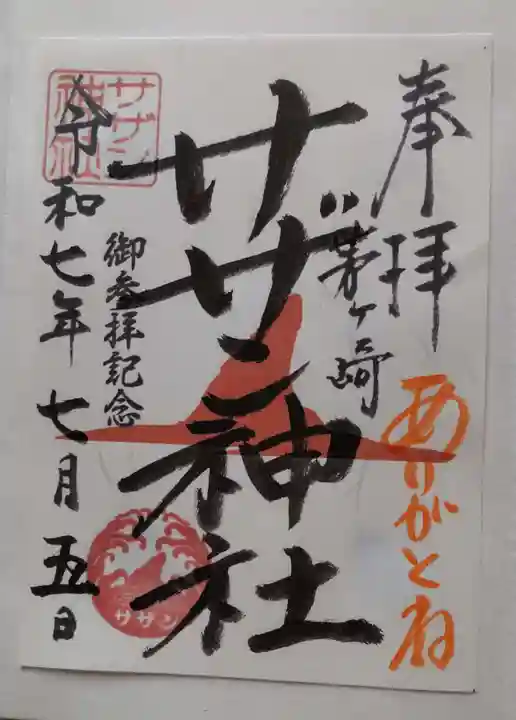 奉拝
ありがとね
茅ヶ崎
サザン神社
御参拝記念
サザン神社
令和七年七月五日
サザン